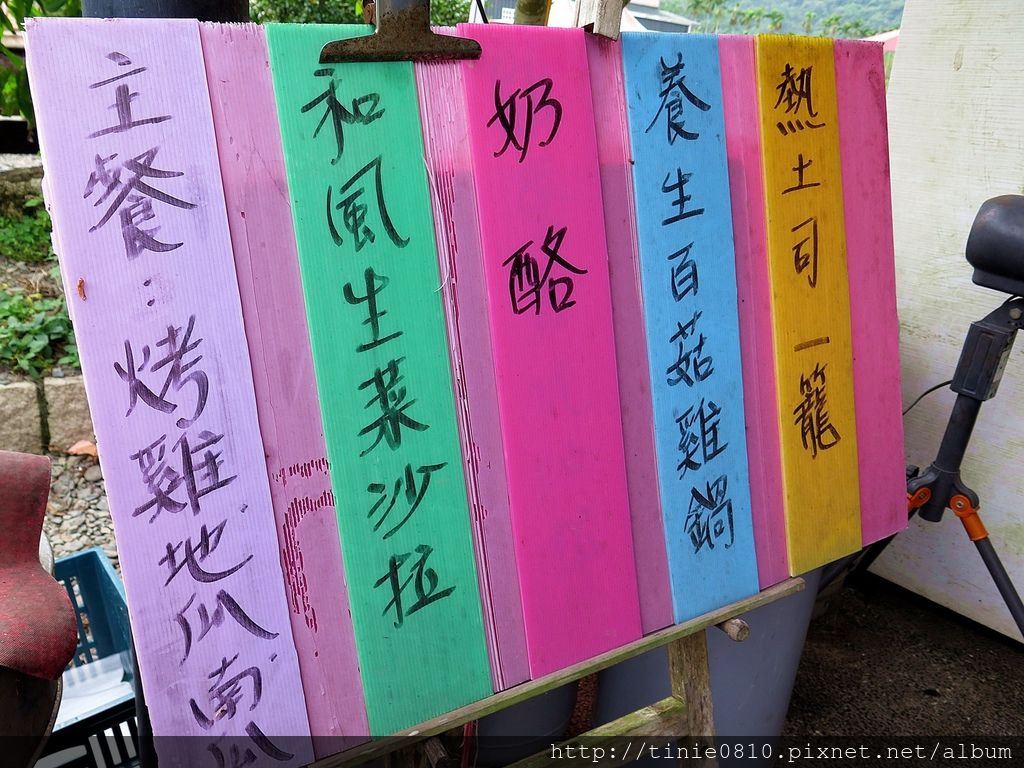 熱土司一籠
養生百菇雞鍋
奶酪
和風生菜沙拉
主餐:烤雞、地瓜、南瓜
http://tinie0810.pixnet.net/album